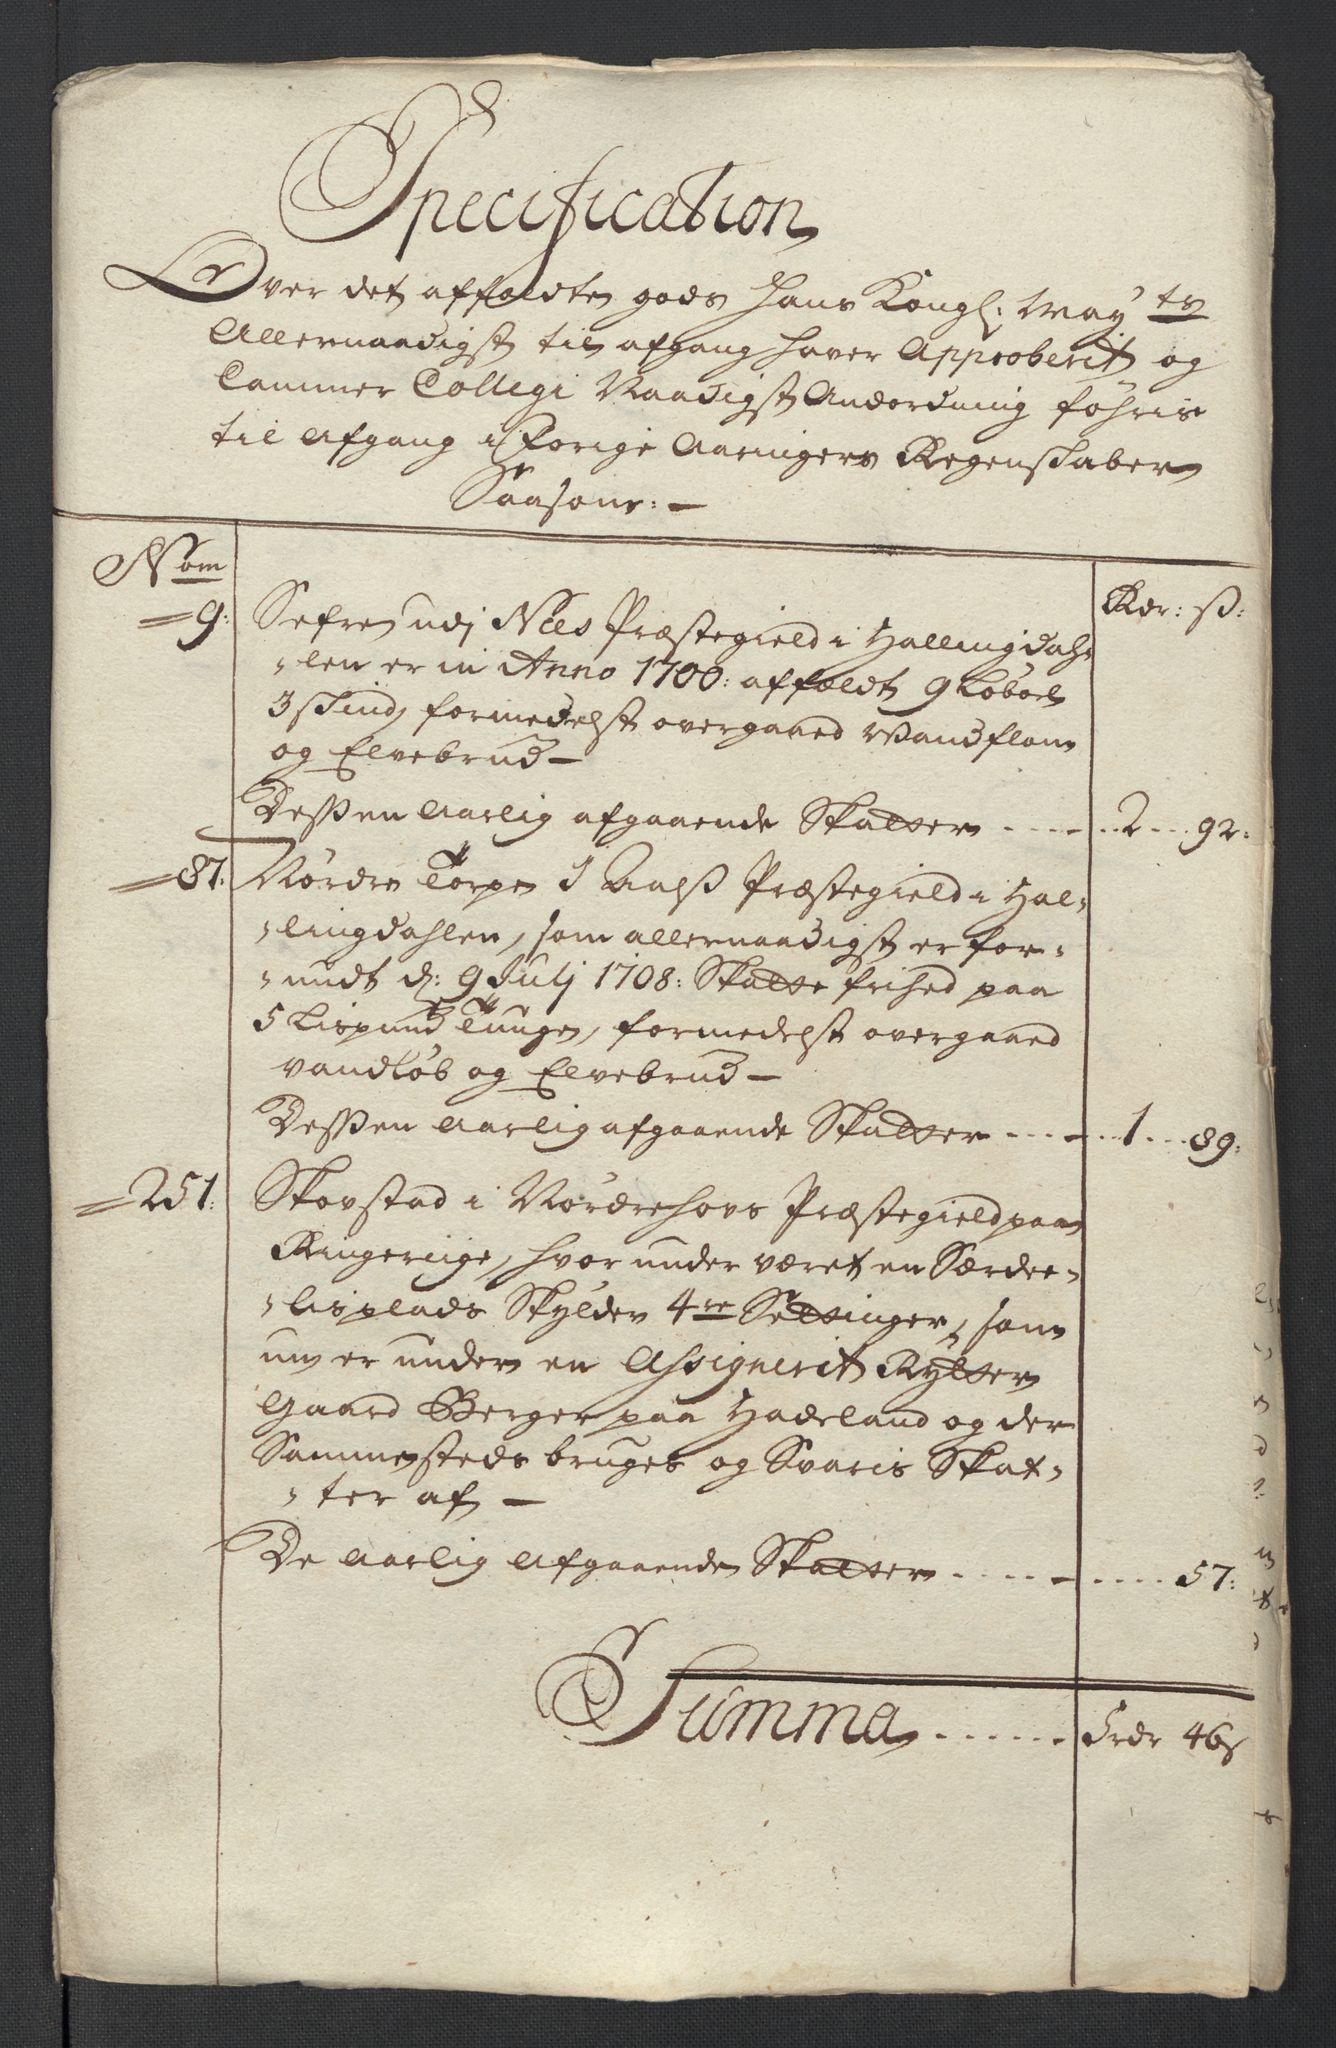 Specification
Over det affældte gods Hans Kongl: May ts
Allernaadigst til afgang haver Approberit og
Cammer Collegi Naadigst Anordning føhris
til Afgang i Forige Aaringers Regenskaber
Saasom: —
Nom
Rdr: ß:
9: Sefre udj Næs Præstegield i Hallingdah-
-len er in Anno 1700: affældt 9 Løbel
3 skind formedelst overgaaed Vandflom
og Elvebrud —
Dessen Aarlig afgaaende Skatter - - - - - 2 - - - 92:
87: Nordre Torpe I Aalß Præstegield i Hal-
-lingdahlen, som allernaadigst er for-
-undt d: 9 Julj 1708: Skatte frihed paa
5 Lispund Tunge, formedelst overgaaed
vandløb og Elvebrud —
Dessen Aarlig afgaaende Skatter - - - - 1 - - - 89:
251: Skovstad i Norderhovs Præstegield paa
Ringeriige, hvor under været en Særdee-
-lisplads Skylder 4re Settinger, som
nu er under en Assignerit Rytter
Gaard Berger paa Hadeland og der
Sammesteds bruges og Svaris Skat-
-ter af —
De Aarlig Afgaaende Skatter - - - - - - - - 57:
Summa - - - - - - 5rdr 46ß